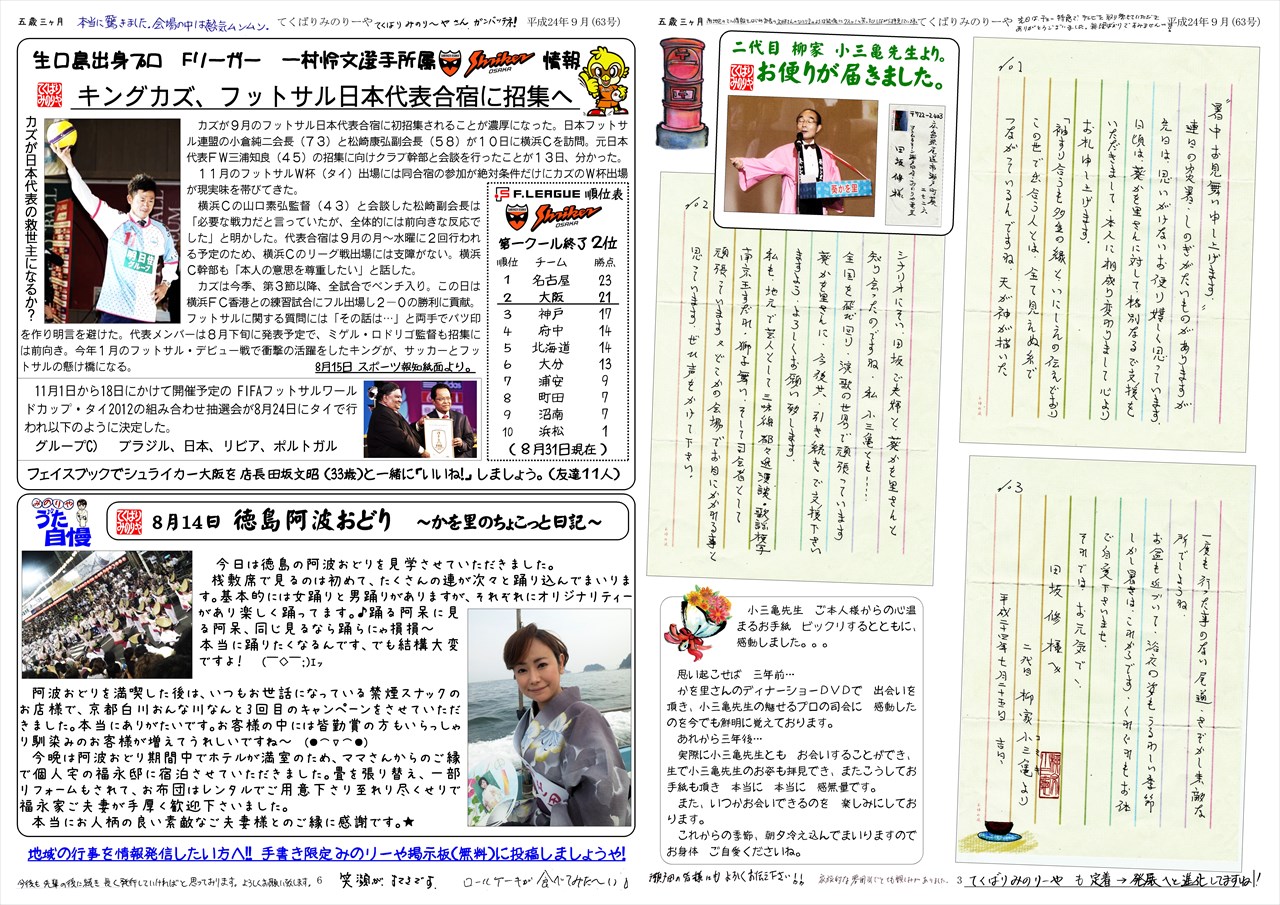 五歳三ヶ月 本当に驚きました。会場の中は熱気ムンムン。 てくぱりみのりーや てくぱりみのりーやさん ガンバッ隊! 平成24年9月(63号)
生口島出身プロ Fリーガー 一村怜文選手所属 Shriker OSAKA 情報
てくぱりみのりや
キングカズ、フットサル日本代表合宿に招集へ
カズが日本代表の救世主になるか?
カズが9月のフットサル日本代表合宿に初招集されることが濃厚になった。日本フットサ
ル連盟の小倉純二会長(73)と松崎康弘副会長(58)が10日に横浜Cを訪問。元日本
代表FW三浦知良(45)の招集に向けクラブ幹部と会談を行ったことが13日、分かった。
11月W杯(タイ)出場には同合宿の参加が絶対条件だけにカズのW杯出場
が現実味を帯びてきた。
横浜Cの山口素弘監督(43)と会談した松崎副会長は
「必要な戦力だと言っていたが、全体的には前向きな反応で
した」と明かした。代表合宿は9月の月~水曜に2回行われ
る予定のため、横浜Cのリーグ戦出場には支障がない。横浜
C幹部も「本人の意思を尊重したい」と話した。
カズは今季、第3節以降、全試合でベンチ入り。この日は
横浜FC香港との練習試合にフル出場し2-0の勝利に貢献。
フットサルに関する質問には「その話は…」と両手でバツ印
を作り明言を避けた。代表メンバーは8月下旬に発表予定で、ミゲル・ロドリゴ監督も招集に
は前向き。今年1月のフットサル・デビュー戦で衝撃の活躍をしたキングが、サッカーとフッ
トサルの懸け橋になる。
8月15日 スポーツ報知紙面より。
F.LEAGUE 順位表
Shriker OSAKA
第一クール終了2位
順位 チーム 勝点
1 名古屋 23
2 大阪 21
3 神戸 17
4 府中 14
5 北海道 14
6 大分 13
7 浦安 9
8 町田 7
9 沼南 7
10 浜松 1
(8月31日現在)
11月1日から18日にかけて開催予定の FIFAフットサルワール
ドカップ・タイ2012の組み合わせ抽選会が8月24日にタイで行
われ以下のように決定した。
グループC) ブラジル、日本、リビア、ポルトガル
フェイスブックでシュライカー大阪を店長田坂文昭(33歳)と一緒に「いいね!」しましょう。(友達11人)
みのりや うた自慢
てくぱりみのりや
8月14日 徳島阿波おどり ~かを里のちょこっと日記~
今日は徳島の阿波おどりを見学させていただきました。
桟敷席で見るのは初めて、たくさんの連が次々と踊り込んでまいりま
す。基本的には女踊りと男踊りがありますが、それぞれにオリジナリティー
があり楽しく踊ってます。♪踊る阿呆に見
る阿呆、同じ見るなら踊らにゃ損損~
本当に踊りたくなるんです、でも結構大変
ですよ! (￣◇￣;)ｴｯ
阿波おどりを満喫した後は、いつもお世話になっている禁煙スナックの
お店様で、京都白川おんな川なんと3回目のキャンペーンをさせていただ
きました。本当にありがたいです。お客様の中には皆勤賞の方もいらっしゃ
り馴染みのお客様が増えてうれしいですね~ (●⌒▽⌒●)
今晩は阿波おどり期間中でホテルが満室のため、ママさんからのご縁
で個人宅の福永邸に宿泊させていただきました。畳を張り替え、一部
リフォームもされて、お布団はレンタルでご用意下さり至れり尽くせりで
福永家ご夫妻が手厚く歓迎下さいました。
本当にお人柄の良い素敵なご夫妻様とのご縁に感謝です。★
地域の行事を情報発信したい方へ!! 手書き限定みのりーや掲示板(無料)に投稿しましょうや!
6 笑顔がすてきです。 ロールケーキが食べてみた~い♪
五歳三ヶ月 てくぱりみのりーや 平成24年9月(63号)
二代目 柳家 小三亀先生より。
てくぱりみのりや
お便りが届きました。
葵かを里
〒722-2403
田坂 修 様
No1
暑中お見舞い申し上げます。
連日の猛暑、しのぎがたいものがありますが
先日は、思いがけないお便り嬉しく思っています。
日頃は葵かを里さんに対して、格別なるご支援を
いただきまして、本人に相成り変わりまして心より
お礼申し上げます。
「袖すり合うも多生の縁」といにしえの伝えどおり
この世で出会う人とは、全て見えぬ糸で
つながっているんですね、天が神が描いた
No2
シナリオにそい、田坂ご夫婦と葵かを里さんと
知り合ったのですね、私小三亀とも……
全国を飛び回り、演歌の世界で頑張っています
葵かを里さんに、今後共、引き続きご支援下さい
ますようよろしくお願い致します。
私も地元で芸人として三味線都々逸漫談、歌謡漫談
南京玉すだれ、獅子舞い、そして司会者として
頑張っています。又どこかの会場でお目にかかれる事と
思っています。ぜひ声をかけて下さい。
No3
一度も行った事のない尾道、さぞかし素敵な
所でしょうね。
お盆も近づいて、浴衣の姿もうるわしい季節
しかし暑さは、これからです、くれぐれもお体
ご自愛下さいませ。
それでは、お元気で、
田坂 修 様へ
二代目 柳家 小三亀より
平成二十四年七月二十五日 吉日
小三亀先生 ご本人様からの心温
まるお手紙 ビックリするとともに、
感動しました。。。
思い起こせば 三年前…
かを里さんのディナーショーDVDで 出会いを
頂き、小三亀先生の魅せるプロの司会に 感動した
のを今でも鮮明に覚えております。
あれから三年後…
実際に小三亀先生とも お会いすることができ、
生で小三亀先生のお姿も拝見でき、またこうしてお
手紙も頂き 本当に 本当に 感無量です。
また、いつかお会いできるのを 楽しみにしてお
ります。
これからの季節、朝夕冷え込んでまいりますので
お身体 ご自愛くださいね。
瀬戸田の皆様にもよろしくお伝え下さい!! 3 てくぱりみのりーやも定着→発展へと進化してますね!!